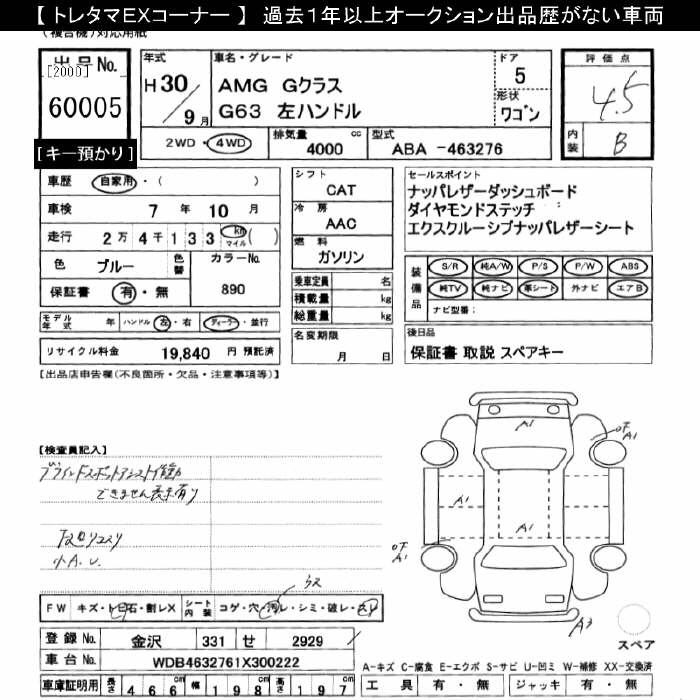 【 トレタマEXコーナー 】 過去1年以上オークション出品歴がない車両
(複合機) 対応用紙
出品No.
[2000]
60005
[キー預かり]
年式
H 30/9月
車名・グレード
AMG Gクラス
G63 左ハンドル
ドア
5
形状
ワゴン
2WD・4WD
排気量 4000 cc
型式 ABA -463276
評価点
4.5
内装
B
車歴 自家用・( )
車検 7年 10月
走行 2万4千133 km マイル ( )
色 ブルー
色替
カラーNo.
890
保証書 有・無
モデル年式 年
ハンドル 左・右
ディーラー・並行
リサイクル料金 19,840 円 預託済
シフト
CAT
冷房
AAC
燃料
ガソリン
乗車定員 名
積載量 kg
総重量 kg
名変期限
月 日
セールスポイント
ナッパレザーダッシュボード
ダイヤモンドステッチ
エクスクルーシブナッパレザーシート
装備品
S/R 純A/W P/S P/W ABS
純TV 純ナビ 革シート 外ナビ エアB
ナビ型番:
後日品
保証書 取説 スペアキー
【出品店申告欄(不良箇所・欠品・注意事項等)】
【検査員記入】
ブラインドスポットアシスト作動
できません表示有り
下廻りコスリ
小A.U.
A1
OF
A1
A1
A1
OF
A1
A3
スペア
ウス
FW キズ・ト石・割レX
シート内装 コゲ・穴・汚レ・シミ・破レ・スレ
登録No. 金沢 331 せ 2929
車台No. WDB4632761X300222
車庫証明用 長さ 466cm 幅 198cm 高さ 197cm
A-キズ C-腐食 E-エクボ S-サビ U-凹ミ W-補修 XX-交換済
工具 有・無 ジャッキ 有・無